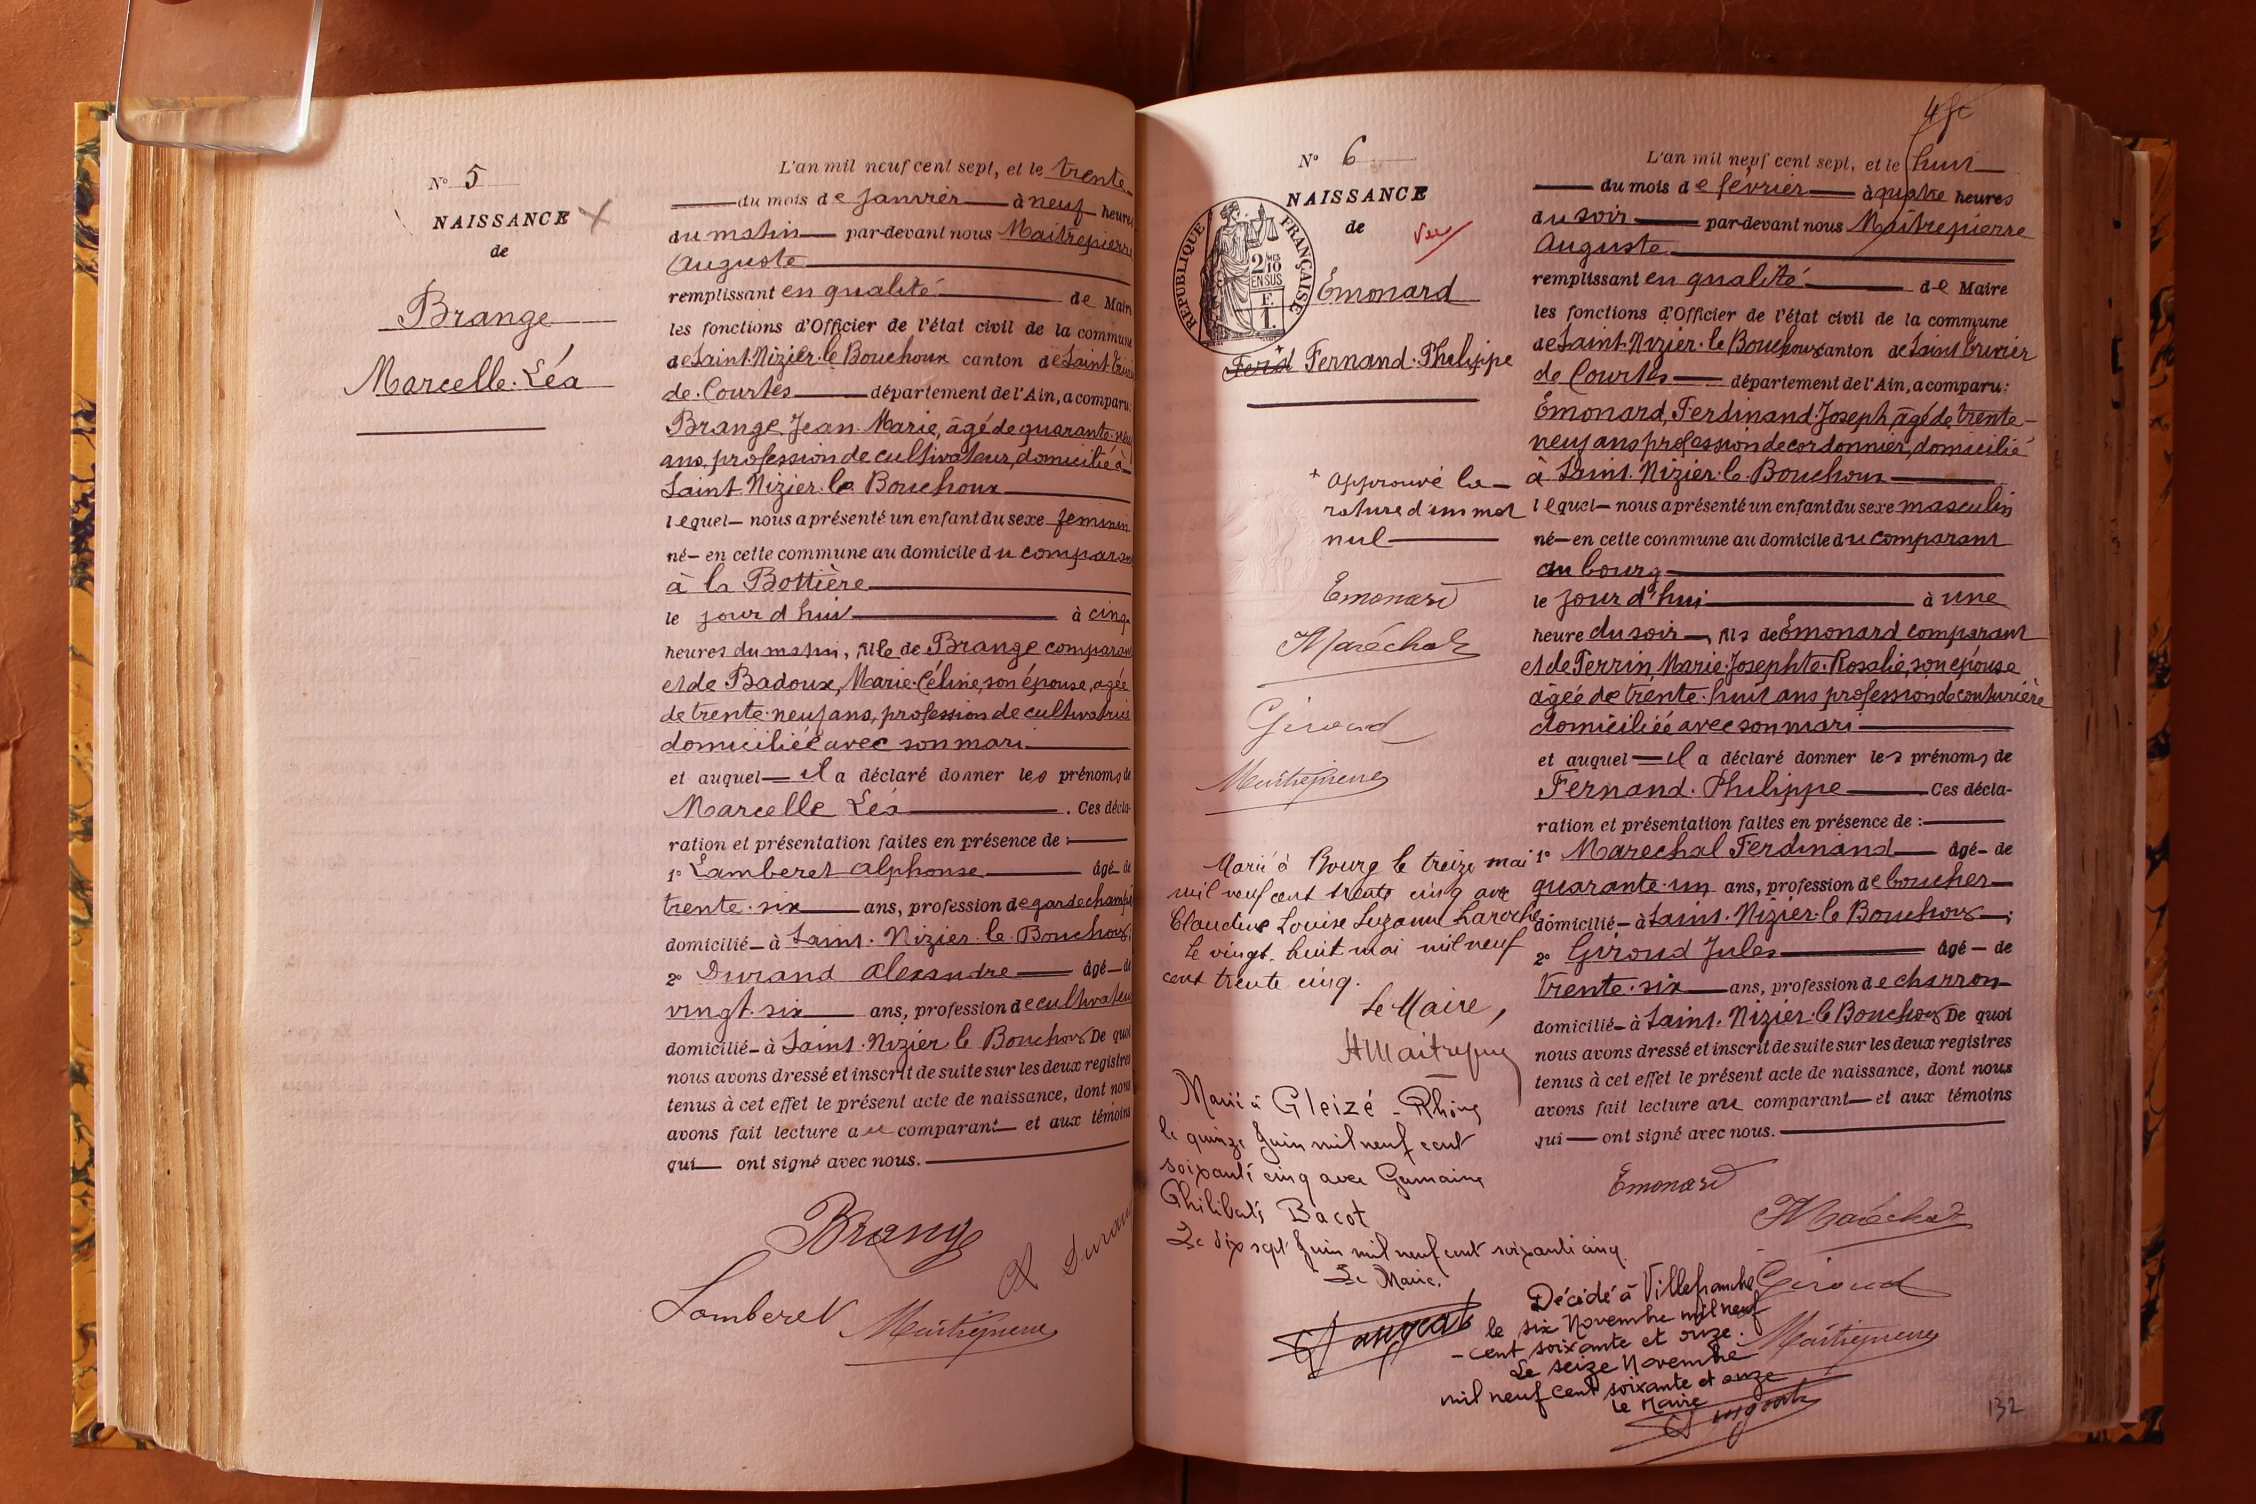 N° 5
NAISSANCE
de
Brange
Marcelle Léa
L'an mil neuf cent sept, et le trente
du mois de Janvier à neuf heures
du matin par-devant nous Maitrepierre
Auguste
remplissant en qualité de Maire
les fonctions d'Officier de l'état civil de la commune
de Saint-Nizier-le-Bouchoux canton de Saint
de Courtes département de l'Ain, a comparu:
Brange Jean Marie, âgé de quarante
ans, profession de cultivateur, domicilié à
Saint Nizier le Bouchoux
lequel nous a présenté un enfant du sexe feminin
né en cette commune au domicile du comparant
à la Bottière
le jour d'hui à cinq
heures du matin, fille de Brange comparant
et de Badoux, Marie-Céline, son épouse, agée
de trente-neuf ans, profession de cultivatrice
domiciliée avec son mari
et auquel il a déclaré donner les prénoms de
Marcelle Léa. Ces décla-
ration et présentation faites en présence de :
1° Lamberet Alphonse âgé de
trente-six ans, profession de garde champê
domicilié à Saint-Nizier-le-Bouchoux
2° Durand Alexandre âgé de
vingt-six ans, profession de cultivateur
domicilié à Saint-Nizier-le-Bouchoux De quoi
nous avons dressé et inscrit de suite sur les deux registres
tenus à cet effet le présent acte de naissance, dont nous
avons fait lecture au comparant et aux témoins
qui ont signé avec nous.
Brange
A Durand
Lamberet
Maitrepierre
4 fc
N° 6
NAISSANCE
de
Vu
RÉPUBLIQUE FRANÇAISE
2/10 MES EN SUS
F. 1.
Émonard
Fernand-Philippe
+ Approuvé la
rature d'un mot
nul
Emonard
F Maréchal
Giroud
Maitrepierre
Marié à Bourg le treize mai
mil neuf cent trente cinq avec
Claudine Louise Suzanne Laroche
le vingt-huit mai mil neuf
cent trente cinq.
Le Maire,
A Maitrepierre
Marié à Gleizé - Rhône
le quinze Juin mil neuf cent
soixante cinq avec Germaine
Philiberte Bacot
Le dix sept Juin mil neuf cent soixante cinq.
Le Maire.
L'an mil neuf cent sept, et le huit
du mois de février à quatre heures
du soir par-devant nous Maitrepierre
Auguste
remplissant en qualité de Maire
les fonctions d'Officier de l'état civil de la commune
de Saint-Nizier-le-Bouchoux canton de Saint Trivier
de Courtes département de l'Ain, a comparu:
Émonard, Ferdinand-Joseph, âgé de trente-
neuf ans profession de cordonnier, domicilié
à Saint-Nizier-le-Bouchoux
lequel nous a présenté un enfant du sexe masculin
né en cette commune au domicile du comparant
au bourg
le jour d'hui à une
heure du soir, fils de Émonard comparant
et de Perrin, Marie-Josephte-Rosalie, son épouse
âgée de trente-huit ans profession de couturière
domiciliée avec son mari
et auquel il a déclaré donner les prénoms de
Fernand-Philippe. Ces décla-
ration et présentation faites en présence de :
1° Maréchal Ferdinand âgé de
quarante-un ans, profession de boucher
domicilié à Saint-Nizier-le-Bouchoux;
2° Giroud Jules âgé de
trente-six ans, profession de charron
domicilié à Saint-Nizier-le-Bouchoux De quoi
nous avons dressé et inscrit de suite sur les deux registres
tenus à cet effet le présent acte de naissance, dont nous
avons fait lecture au comparant et aux témoins
qui ont signé avec nous.
Emonard
F Maréchal
Giroud
Maitrepierre
Décédé à Villefranche
le six Novembre mil neuf
-cent soixante et onze.
Le seize Novembre
mil neuf cent soixante et onze
le Maire
132